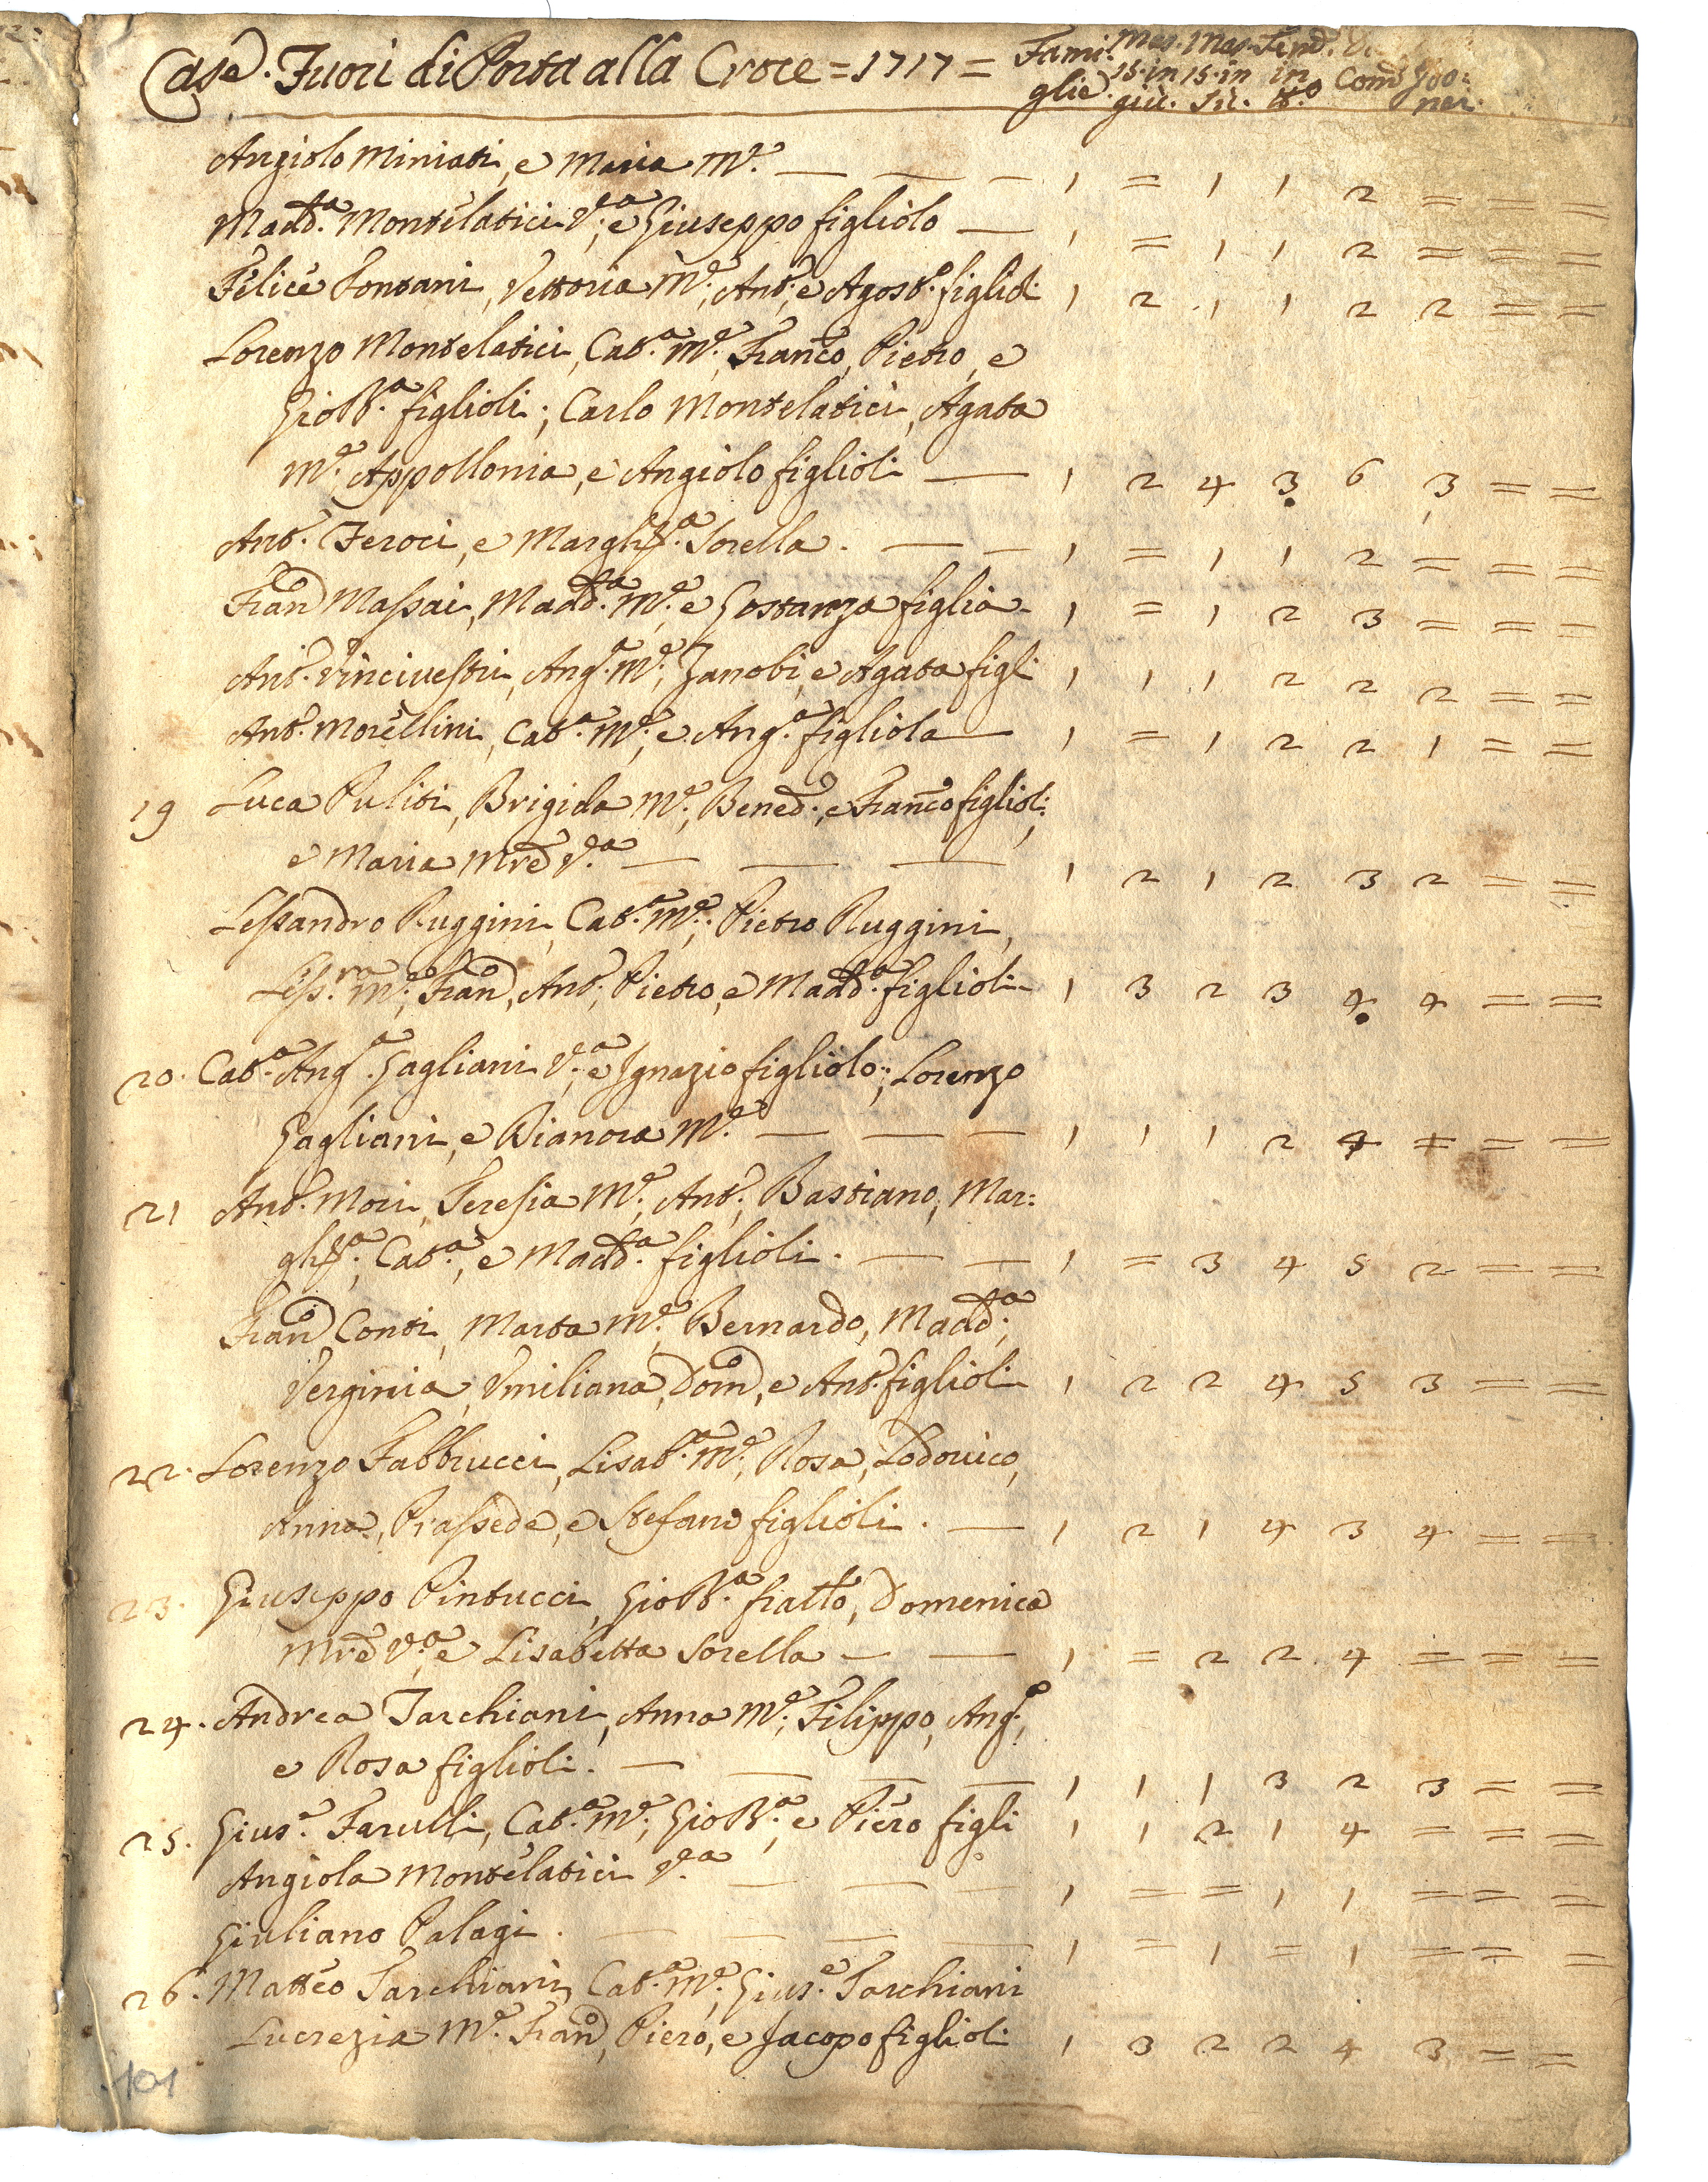 Case. Fuori di Porta alla Croce = 1717 = Fami: Mas. Mas. Fem.
glie. 15. in 15. in in Com
giù. Sù. ner.
Angiolo Miniati, e Maria M.e — — — 1 = 1 1 2 = = =
Madd.a Montelatici V.a, e Giuseppo figliolo — 1 = 1 1 2 = = =
Felice Fontani, Vettoria M.e, Ant.o, e Agost.o figlioli 1 2 1 1 2 2 = =
Lorenzo Montelatici, Cat.a M.e, Franco, Pietro, e
Gio B.a figlioli; Carlo Montelatici, Agata
M.e, Appollonia, e Angiolo figlioli — 1 2 4 3 6 3 = =
Ant.o Feroci, e Margh.ta Sorella. — — 1 = 1 1 2 = = =
Fran.o Massai, Madd.a M.e, e Gostanza figlia 1 = 1 2 3 = = =
Ant.o Vincivestri, Ang.a M.e, Zanobi, e Agata figli 1 1 1 2 2 2 = =
Ant.o Morellini, Cat.a M.e, e Ang.a figliola — 1 = 1 2 2 1 = =
19 Luca Puliti, Brigida M.e, Bened.o, e Franco figlioli;
e Maria Mre V.a — — — 1 2 1 2 3 2 = =
Lessandro Ruggini, Cat.a M.e; Pietro Ruggini,
Less.ra M.e, Fran.o, Ant.o, Pietro, e Madd.a figlioli 1 3 2 3 4 4 = =
20. Cat.a Ang.a Gagliani V.a, e Ignazio figliolo; Lorenzo
Gagliani, e Dianora M.e — — — 1 1 1 2 4 = = =
21 Ant.o Mori, Teresia M.e, Ant.o, Bastiano, Mar:
gh.ta, Cat.a, e Madd.a figlioli. — — 1 = 3 4 5 2 = =
Fran.o Conti, Marta M.e, Bernardo, Madd.a,
Verginia, Umiliana, Dom.o, e Ant.o figlioli 1 2 2 4 5 3 = =
22. Lorenzo Fabbrucci, Lisab.a M.e, Rosa, Lodovico,
Anna, Prassede, e Stefano figlioli. — 1 2 1 4 3 4 = =
23. Giuseppo Pintucci, Gio B.a fratto, Domenica
Mre V.a, e Lisabetta Sorella — — 1 = 2 2 4 = = =
24. Andrea Tarchiani, Anna M.e, Filippo, Ang.o,
e Rosa figlioli. — — — — 1 1 1 3 2 3 = =
25. Gius.e Farulli, Cat.a M.e, Gio B.a, e Piero figli 1 1 2 1 4 = = =
Angiola Montelatici V.a — — — 1 = = 1 1 = = =
Giuliano Palagi. — — — — 1 = 1 = 1 = = =
26. Matteo Tarchiani, Cat.a M.e, Gius.e Tarchiani
Lucrezia M.e, Fran.o, Piero, e Jacopo figlioli 1 3 2 2 4 3 = =
101